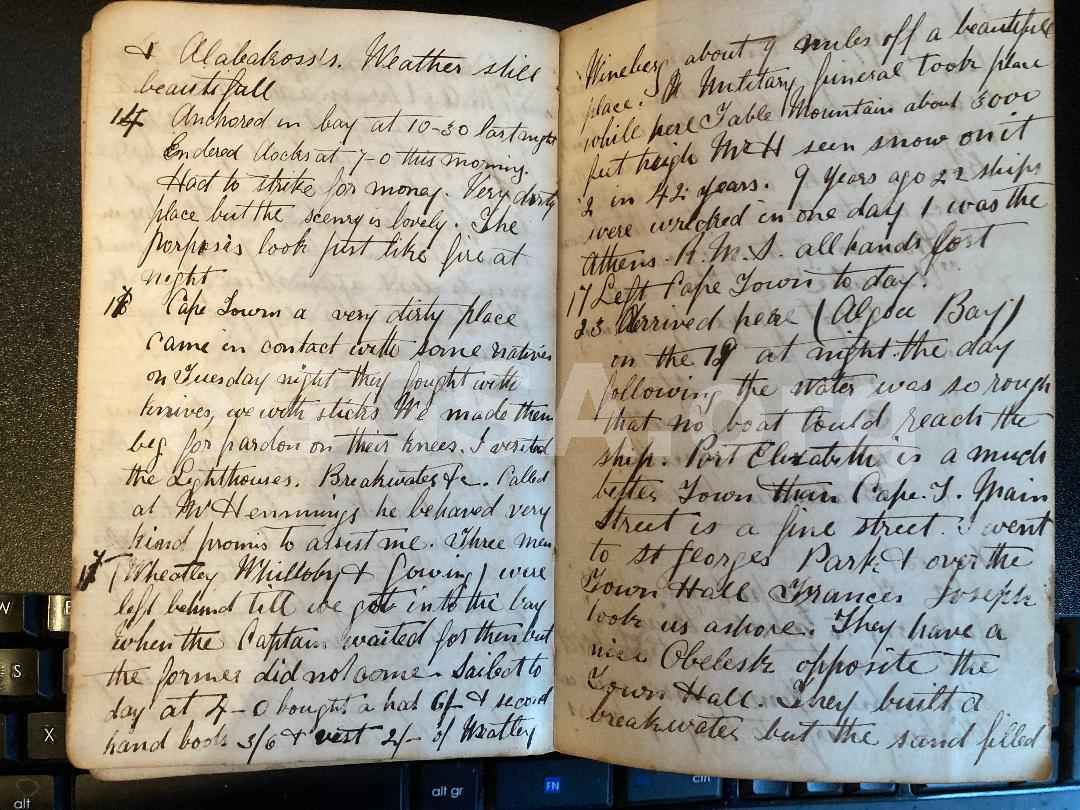 & Alabatross's. Weather still
beautifall
14 Anchored in bay at 10-30 last night
Endered docks at 7-0 this morning.
Had to strike for money. Very dirty
place but the scenry is lovely. The
Porposis look just like fire at
night
Cape Town a very dirty place
came in contact with some natives
on Tuesday night they fought with
knives, we with sticks We made them
beg for pardon on their knees. I visited
the Lighthouses. Breakwater &c. Called
at Mr Hemmings he behaved very
kind promis to assist me. Three men
(Wheatley Whilloby & Gowing) were
left behind till we got into the bay
when the Captain waited for them but
the former did not come. Sailed to
day at 4-0 bought a hat 6/- & second
hand book 3/6 & vest 2/- of Weatley
Wineberg about 9 miles off a beautifull
place. A Military funeral took place
while here Table Mountain about 3000
fut heigh Mr H seen snow on it
2 in 42 years. 9 years ago 22 ships
were wrecked in one day 1 was the
Athens. R.M.S. all hands lost
17 Left Cape Town to day.
23 Arrived here (Algoa Bay)
on the at night the day
following the water was so rough
that no boat could reach the
ship. Port Elizabeth is a much
better Town than Cape T. Main
Street is a fine street. I went
to St Georges Park & over the
Town Hall Frances Joseph
took us ashore. They have a
nice Obelesk opposite the
Town Hall. They built a
breakwater but the sand filled
W
S
X
alt
alt gr
FN
ctrl